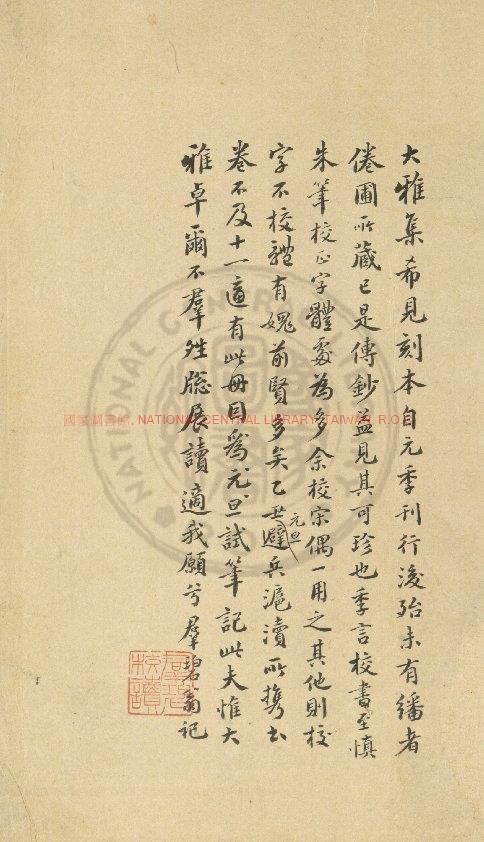 大雅集希見刻本自元季刊行後殆未有繙者
倦圃所藏已是傳鈔益見其可珍也季言校書至慎
朱筆校正字體處為多余校宋偶一用之其他則校
字不校體有媿前賢多矣乙丑避兵滬瀆所携書
元旦
卷不及十一適有此冊因為元旦試筆記此夫惟大
雅卓爾不羣雖牕展讀適我願兮羣碧翁記
羣碧校讀
國家圖書館, NATIONAL CENTRAL LIBRARY, TAIWAN, R.O.C
NATIONAL CENTRAL LIBRARY